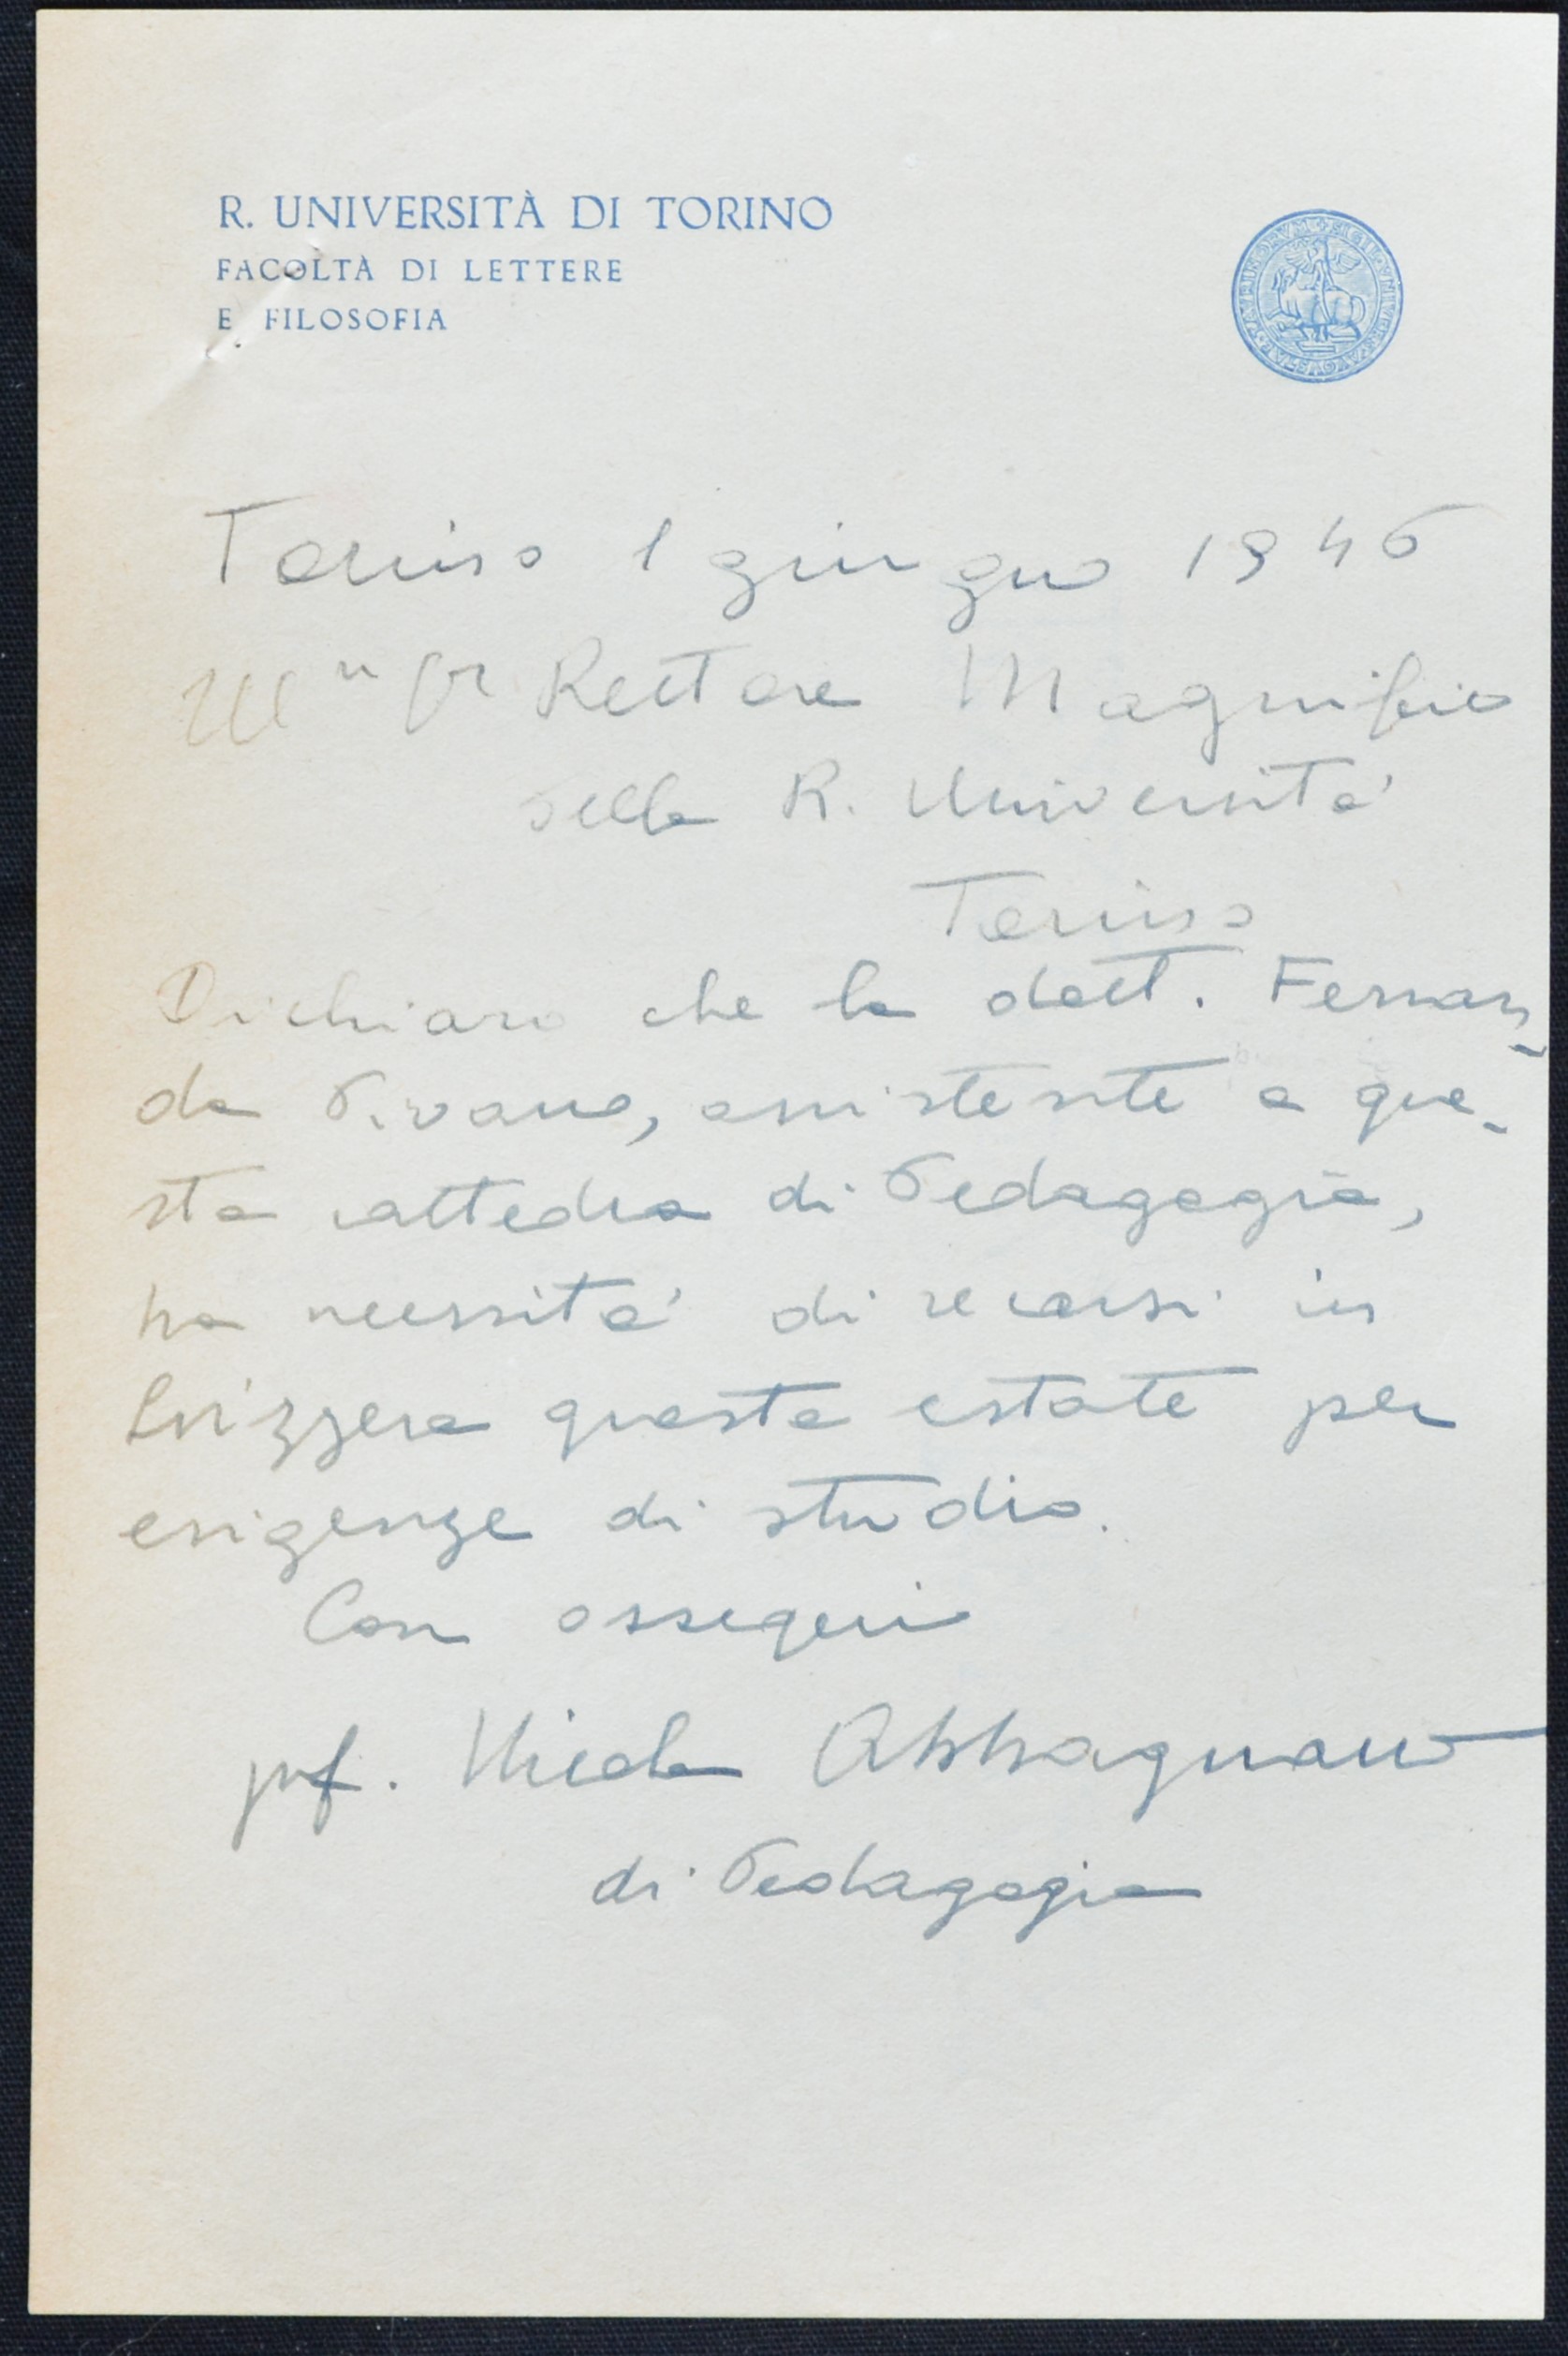 R. UNIVERSITÀ DI TORINO
FACOLTÀ DI LETTERE
E FILOSOFIA
Torino 1 giugno 1946
Ill Rettore Magnifico
della R. Università
Torino
Dichiaro che la dott. Fernan-
da Pivano, assistente a que-
sta cattedra di Pedagogia,
ha necessità di recarsi in
Svizzera questa estate per
esigenze di studio.
Con ossequi
prof. Nicola Abbagnano
di Pedagogia